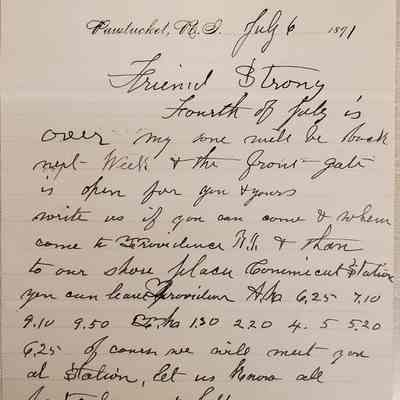 Pawtucket, R. I. July 6 1891
Friend Strong
Fourth of July is
over my sons will be back
next Week & the front gate
is open for you & yours
write us if you can come & when
come to Providence R.I. & than
to our shore place Conimicut Station
you can leave Providence A.M. 6.25 7.10
9.10 9.50 P.M. 1.30 2.20 4. 5 5.20
6.25 of course we will meet you
at Station, let us know all